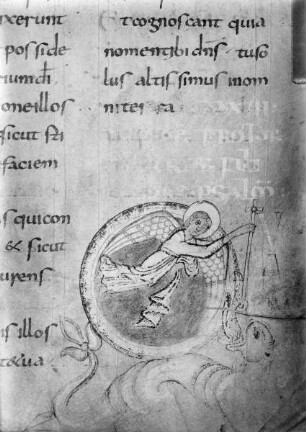 ixerunt
posside
rium dī
oneillos
sicut sti
faciem
s quicon
& sicut
urens
sillos
t&ua
Et cognoscant quia
nomen tibi dn̄s tu so
lus altissimus in om
ni terra